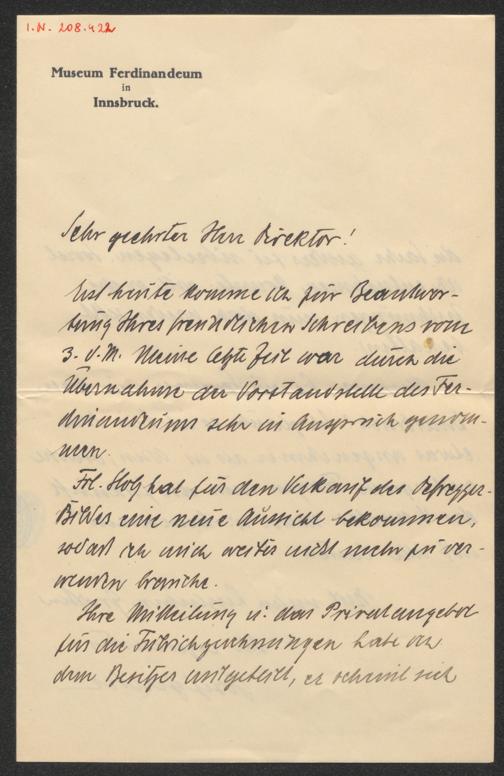 I.N. 208.422
Museum Ferdinandeum
in
Innsbruck.
Sehr geehrter Herr Direktor!
Erst heute komme ich zur Beantwor-
tung Ihres freundlichen Schreibens vom
3. v. M. Meine letzte Zeit war durch die
Übernahme der Vorstandstelle des Fer-
dinandeums sehr in Anspruch genom-
men.
Frl. Holz hat für den Verkauf des Defregger-
Bildes eine neue Aussicht bekommen,
sodaß ich mich weiter nicht mehr zu ver-
wenden brauche.
Ihre Mitteilung u. das Privatangebot
für die Führichzeichnungen habe ich
dem Besitzer mitgeteilt, es scheint sich